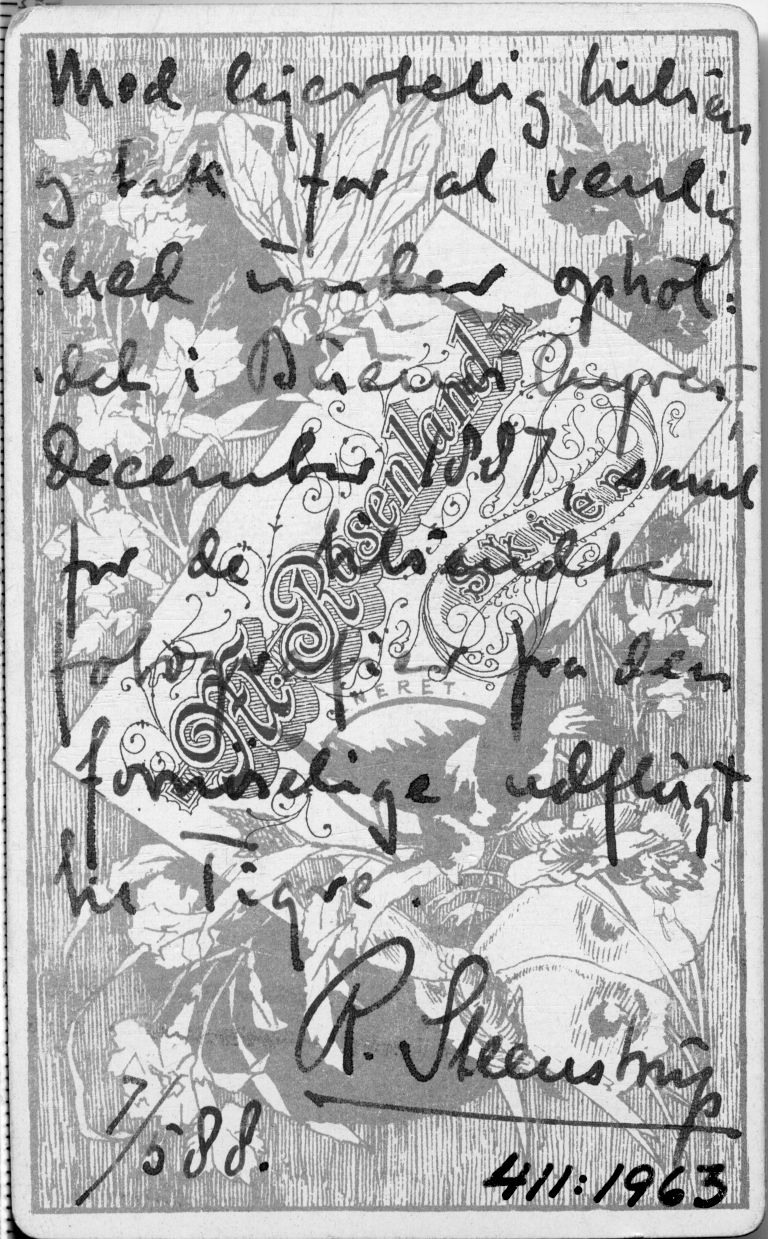 Med hjertelig hilsen
og tak for al venlig
:hed under ophol:
:det i Buenos Ayres,
december 1887, samt
for de tilsendte
fotografier fra den
fornøielige udflugt
til Tigre.
R. Steenstrup
7/5 88.
411:1963
H. Rosenlund
Skien
NERET.